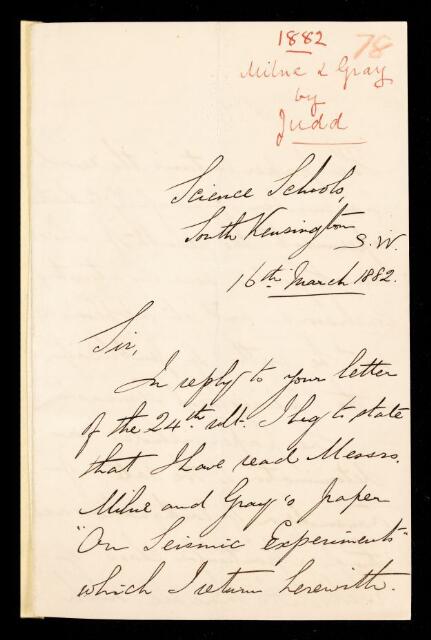 1882 78
Milne & Gray
by
Judd
Science Schools,
South Kensington
S.W.
16th March 1882.
Sir,
In reply to your letter
of the 24th ult. I beg to state
that I have read Messrs.
Milne and Gray's paper
"On Seismic Experiments"
which I return herewith.